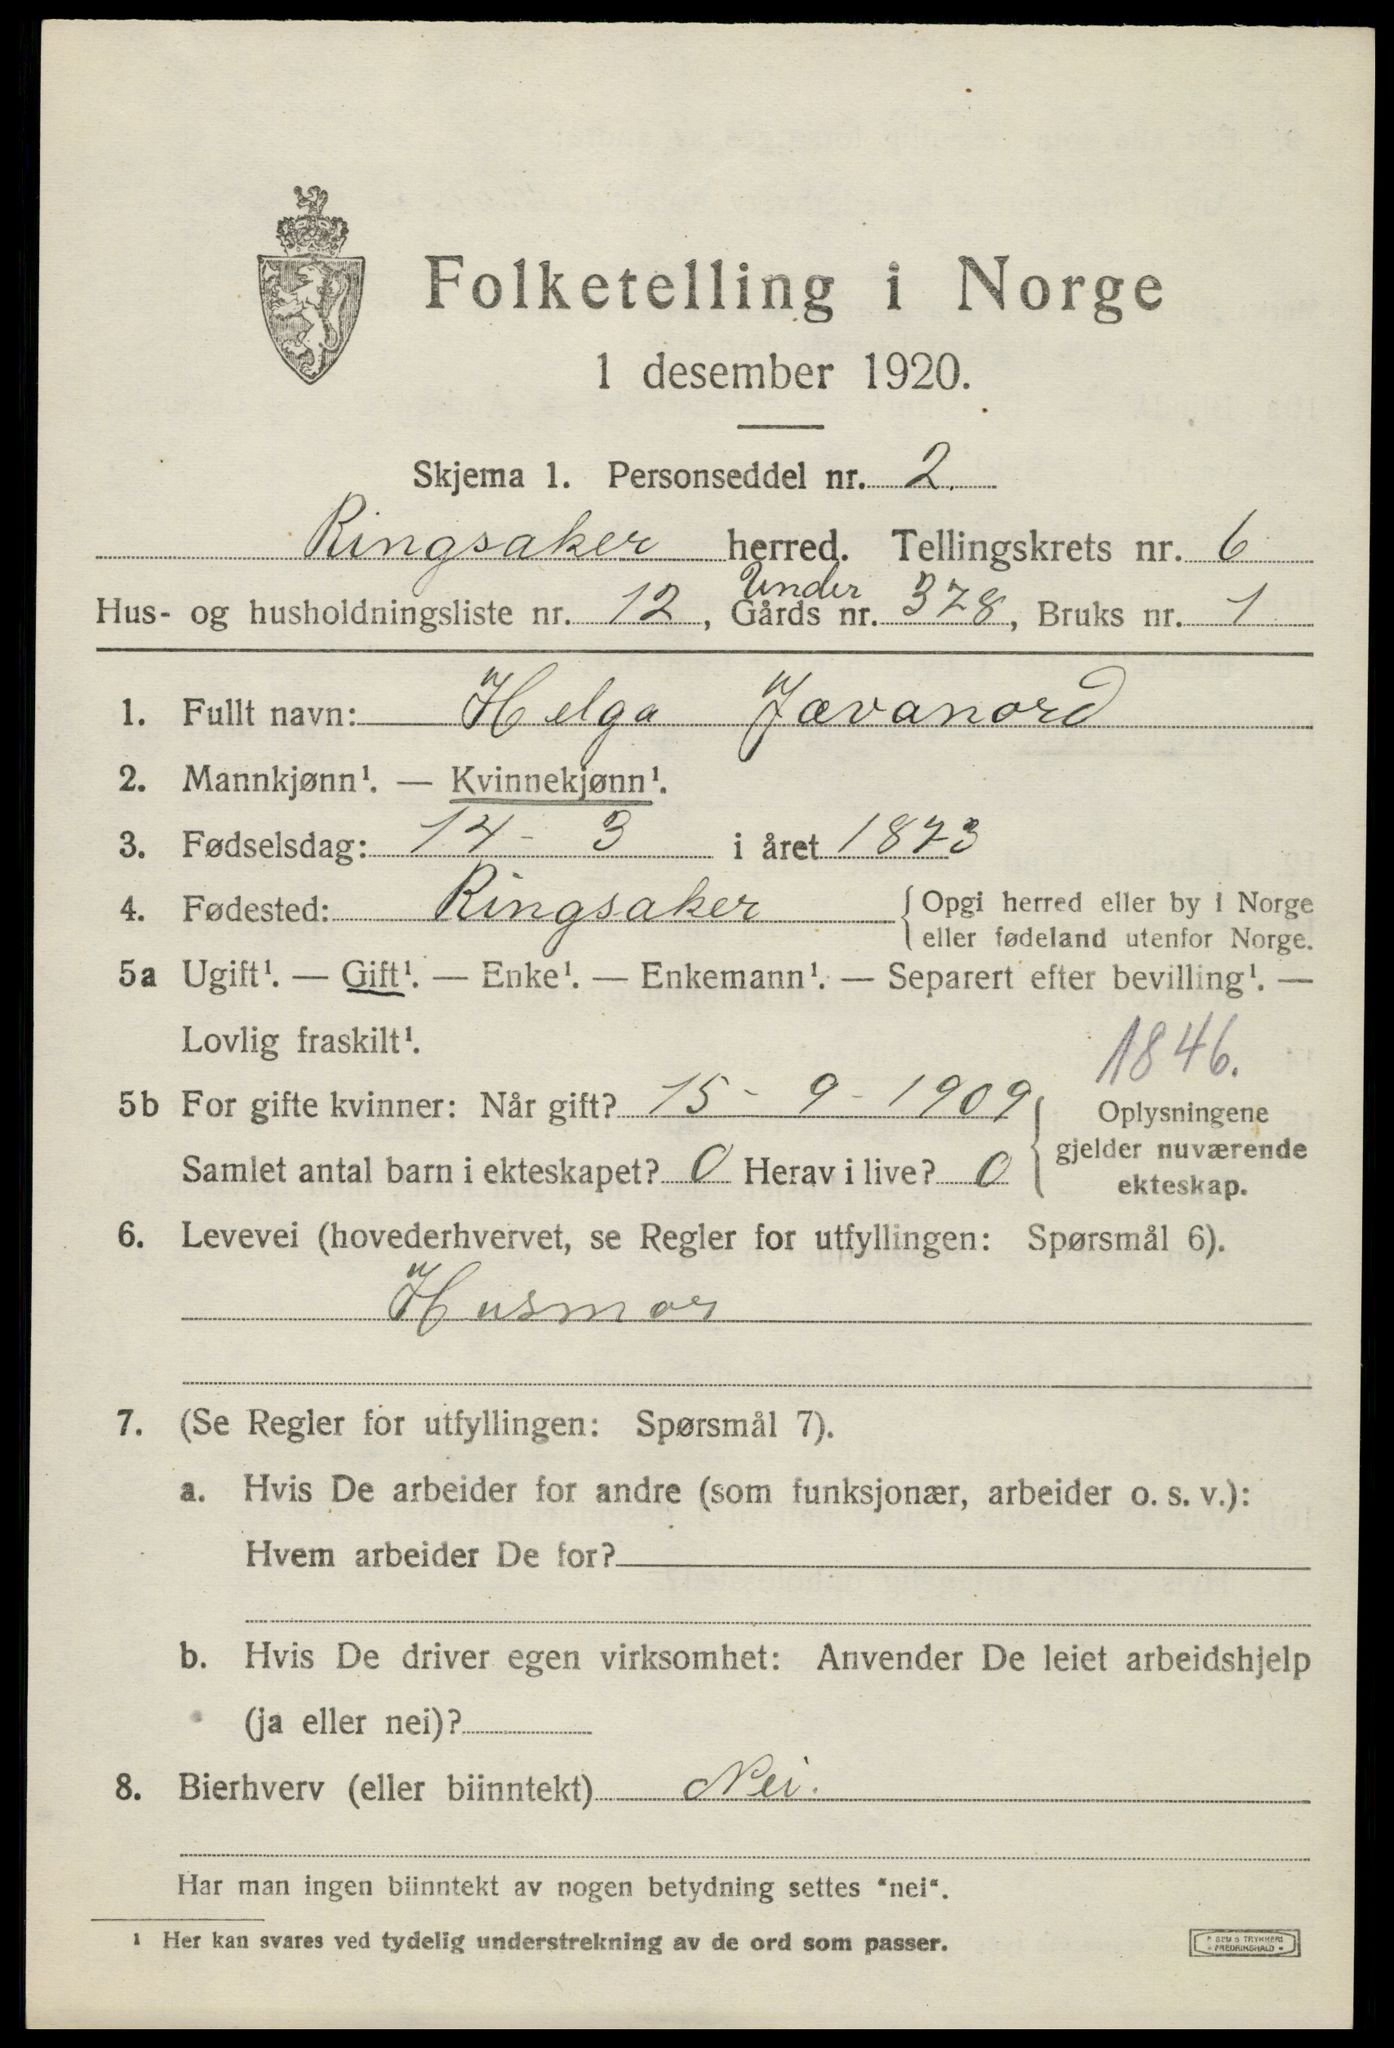 Folketelling i Norge
1 desember 1920.
Skjema 1. Personseddel nr. 2.
Ringsaker herred. Tellingskrets nr. 6
Under
Hus- og husholdningsliste nr. 12, Gårds nr. 378, Bruks nr. 1
1. Fullt navn: Helga Jævanord
2. Mannkjønn¹. — Kvinnekjønn¹.
3. Fødselsdag: 14 - 3 i året 1873
4. Fødested: Ringsaker { Opgi herred eller by i Norge
eller fødeland utenfor Norge.
5a Ugift¹. — Gift¹. — Enke¹. — Enkemann¹. — Separert efter bevilling¹. —
Lovlig fraskilt¹.
1846.
5b For gifte kvinner: Når gift? 15 - 9 - 1909 { Oplysningene
gjelder nuværende
Samlet antal barn i ekteskapet? 0 Herav i live? 0
ekteskap.
6. Levevei (hovederhvervet, se Regler for utfyllingen: Spørsmål 6).
Husmor
7. (Se Regler for utfyllingen: Spørsmål 7).
a. Hvis De arbeider for andre (som funksjonær, arbeider o. s. v.):
Hvem arbeider De for?
b. Hvis De driver egen virksomhet: Anvender De leiet arbeidshjelp
(ja eller nei)?
8. Bierhverv (eller biinntekt) Nei.
Har man ingen biinntekt av nogen betydning settes "nei".
¹ Her kan svares ved tydelig understrekning av de ord som passer.
SEM S TRYKKERI
FREDRIKSHALD